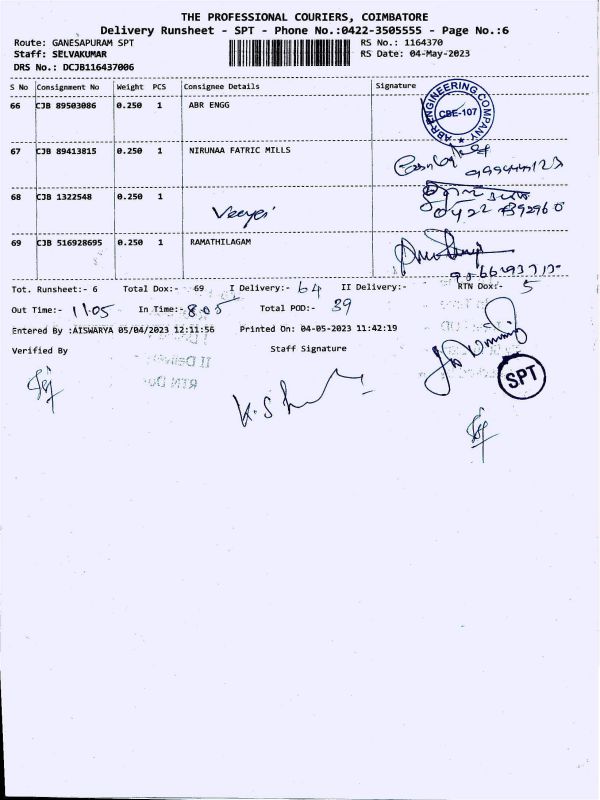 THE PROFESSIONAL COURIERS, COIMBATORE
Delivery Runsheet - SPT - Phone No.:0422-3505555 - Page No.:6
Route: GANESAPURAM SPT RS No.: 1164370
Staff: SELVAKUMAR RS Date: 04-May-2023
DRS No.: DCJB116437006
S No Consignment No Weight PCS Consignee Details Signature
66 CJB 89503086 0.250 1 ABR ENGG
ABR ENGINEERING COMPANY
CBE-107
67 CJB 89413815 0.250 1 NIRUNAA FATRIC MILLS
68 CJB 1322548 0.250 1
69 CJB 516928695 0.250 1 RAMATHILAGAM
Tot. Runsheet:- 6 Total Dox:- 69 I Delivery:- 64 II Delivery:- RTN Dox:- 5
Out Time:- 11.05 In Time:- 8.05 Total POD:- 39
Entered By :AISWARYA 05/04/2023 12:11:56 Printed On: 04-05-2023 11:42:19
Verified By Staff Signature
SPT